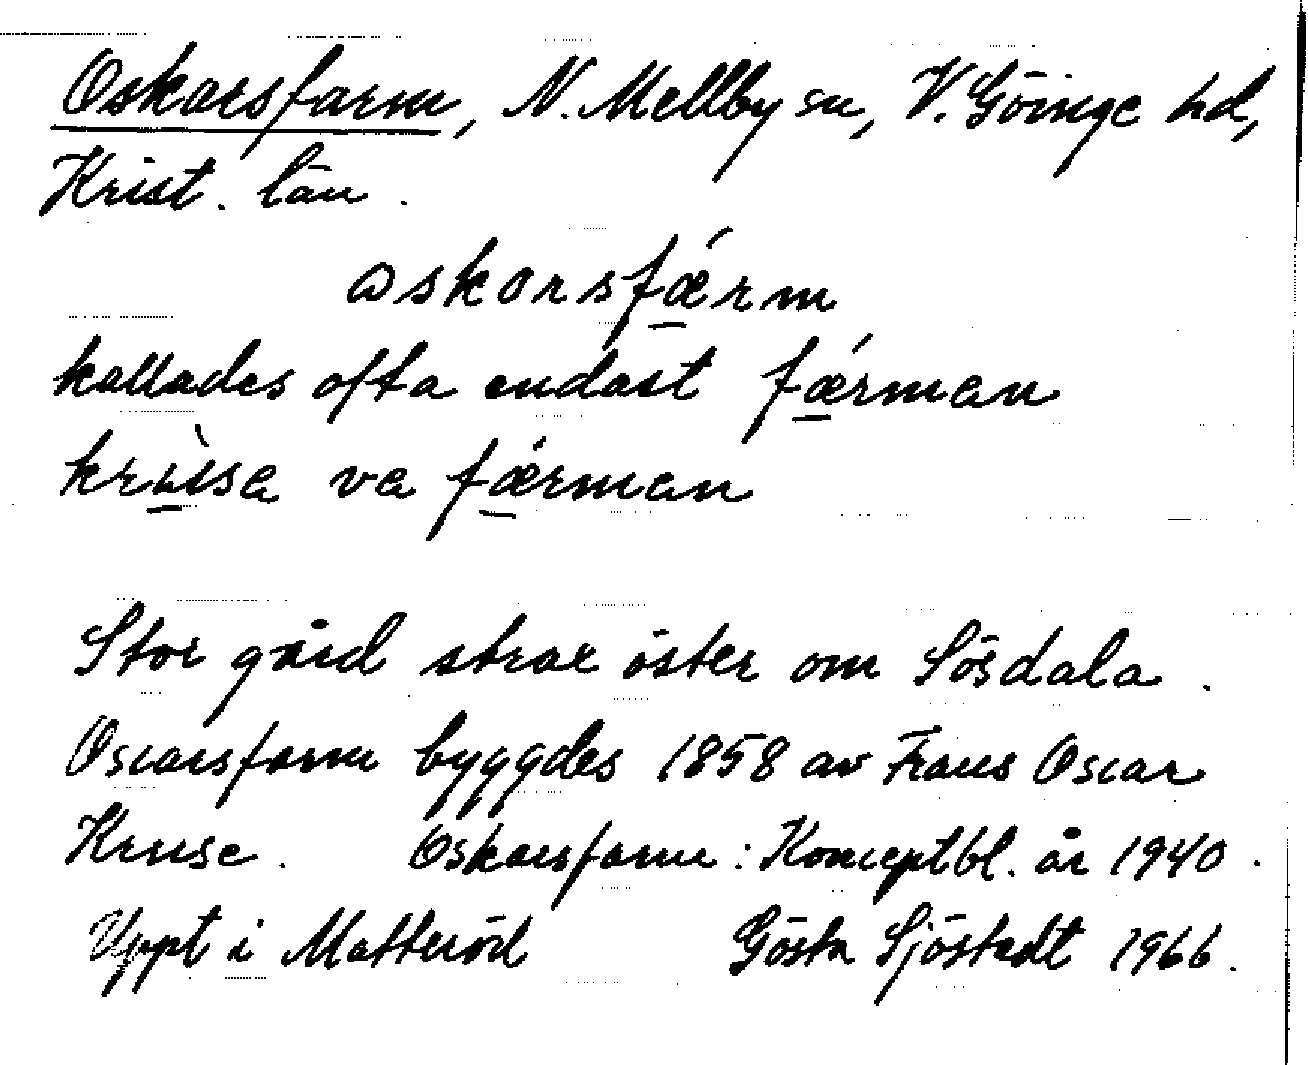 Oskarsfarm, N. Mellby sn, V. Göinge hd,
Krist. län.
oskorsfǽrm
kallades ofta endast fǽrman
va fǽrman
Stor gård strax öster om Sösdala.
Oscarsfarm byggdes 1858 av Frans Oscar
Kruse. Oskarsfarm: Konceptbl. år 1940.
Uppt i Matteröd Gösta Sjöstedt 1966.